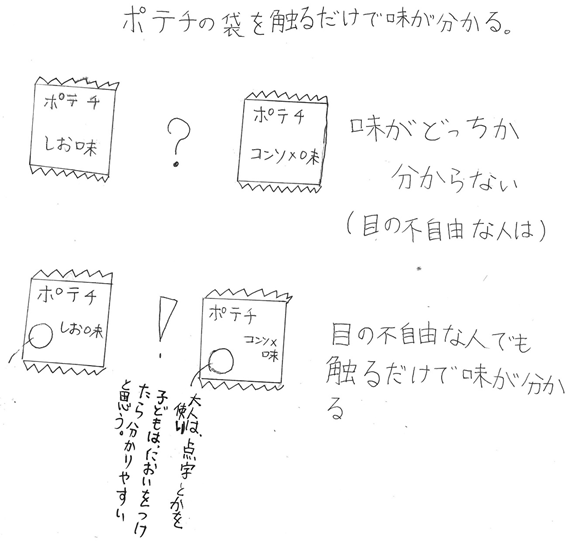 ポテチの袋を触るだけで味が分かる。
ポテチ
しお味
?
ポテチ
コンソメ味
味がどっちか
分からない
(目の不自由な人は)
ポテチ
しお味
!
ポテチ
コンソメ
味
目の不自由な人でも
触るだけで味が分か
る
大人は、点字とかを
使い
子どもは、においをつけ
たら分かりやすい
と思う。